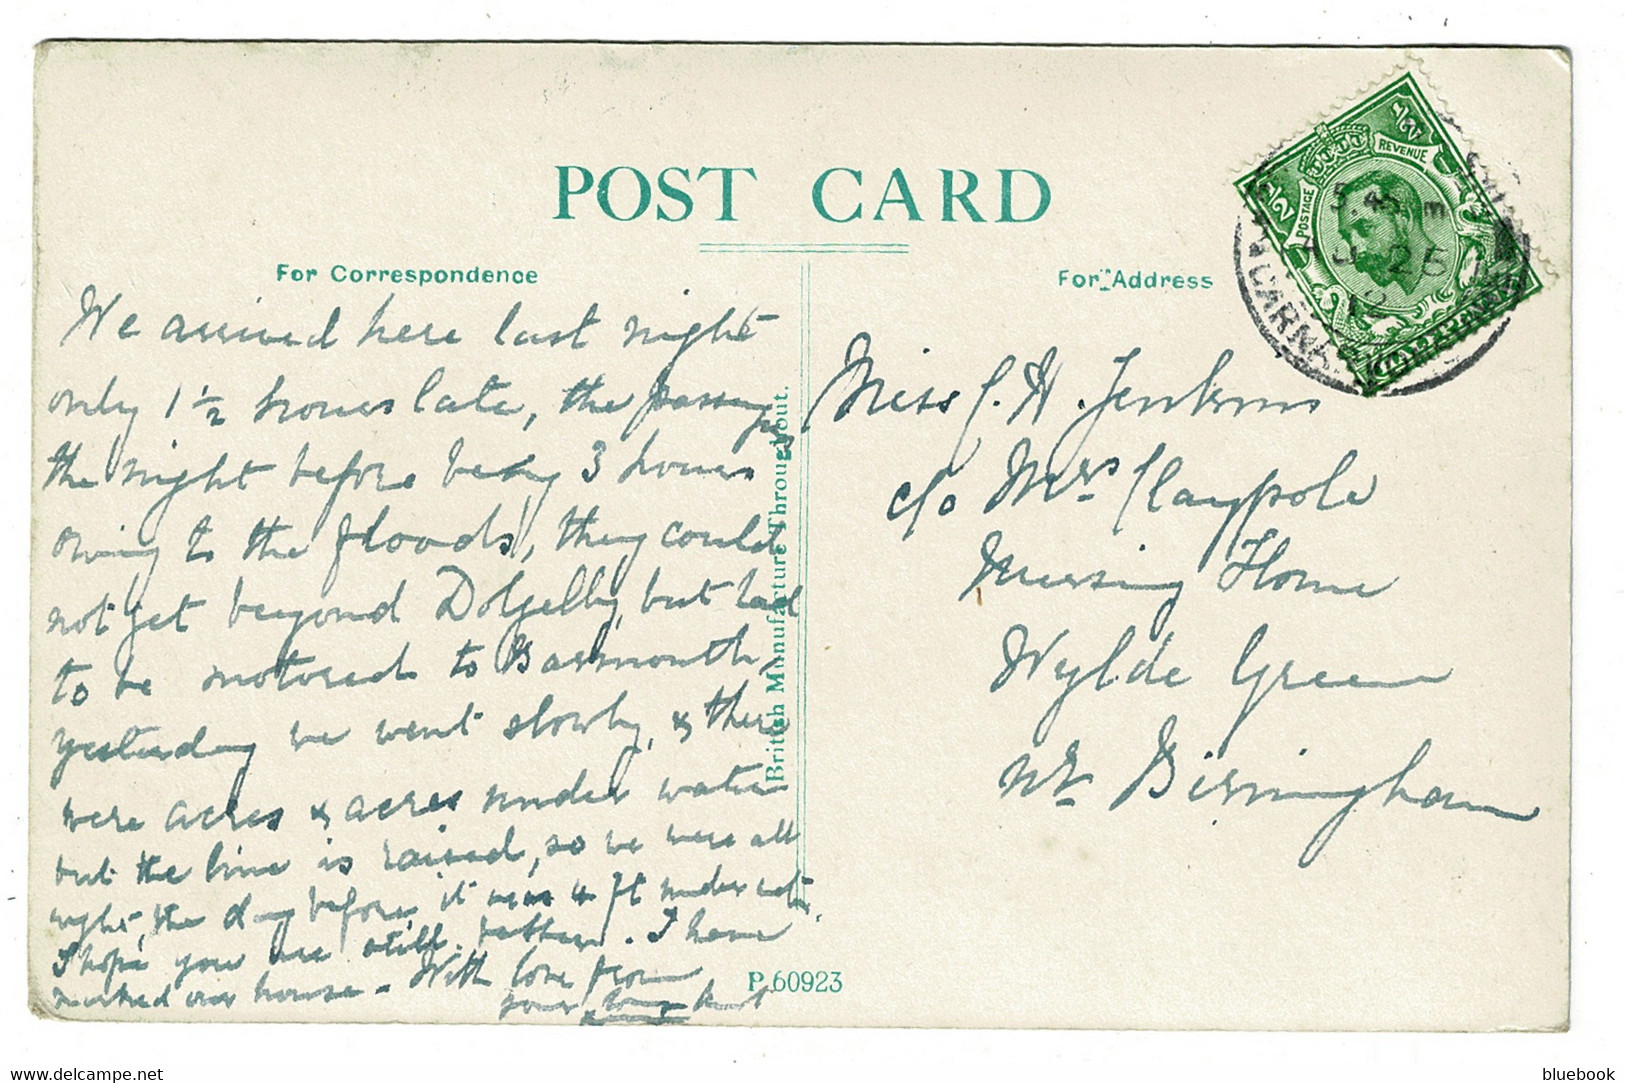 POST CARD
For Correspondence
For Address
We arrived here last night
only 1½ hours late, the passengers
the night before being 3 hours
owing to the floods, they could
not get beyond Dolgelly, but had
to be motored to Barmouth,
yesterday we went slowly, & there
were acres & acres under water
but the line is raised, so we were all
right, the day before it was 4 ft under water.
I hope you are still better. I have
marked our house – With love from
your Aunt
British Manufacture Throughout.
P. 60923
Miss C. H. Jenkins
c/o Mrs Claypole
Nursing Home
Wylde Green
Nr Birmingham
1/2
1/2
POSTAGE
REVENUE
HALFPENNY
5.45 E
AU 25
12
CARNA
www.delcampe.net
bluebook